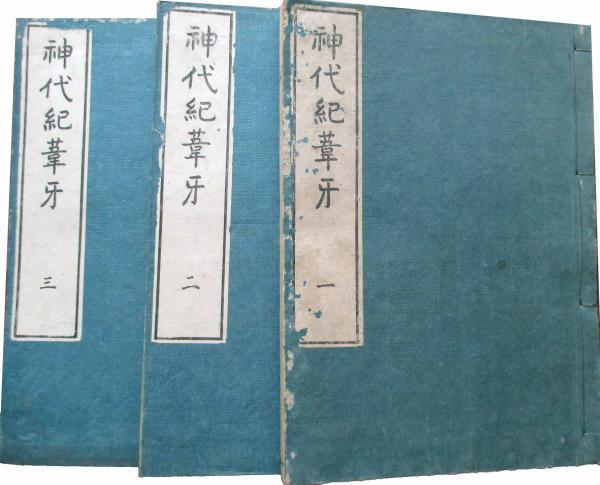 神代紀葦牙 一
神代紀葦牙 二
神代紀葦牙 三